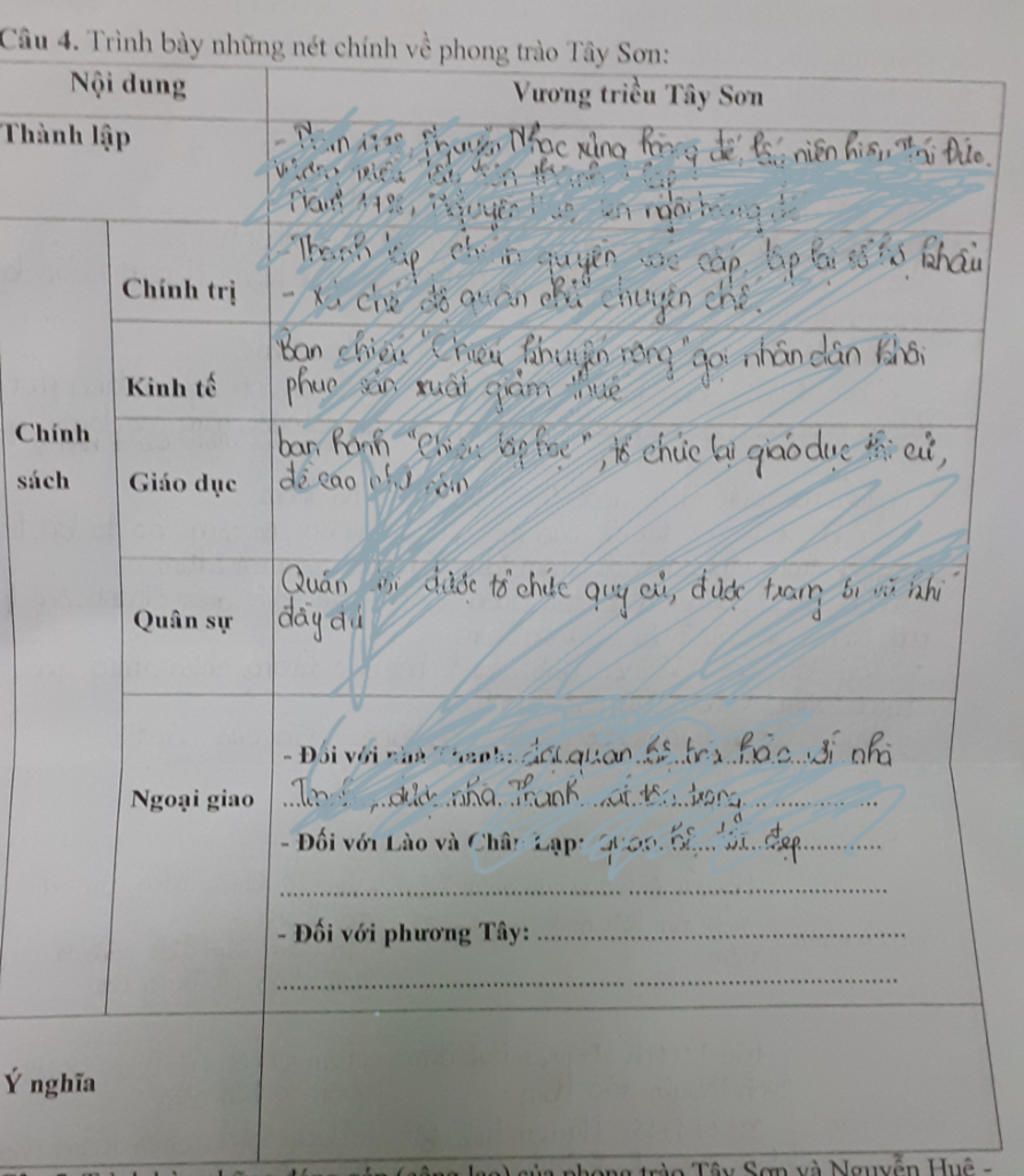 Câu 4. Trình bày những nét chính về phong trào Tây Sơn:
Nội dung
Vương triều Tây Sơn
Thành lập
Nhạc xưng hoàng đế, lấy niên hiệu Thái Đức.
ngôi hoàng đế
Chính sách
Chính trị
- Thành lập chính quyền các cấp, lập lại sổ hộ khẩu
- Xd chế độ quân chủ chuyên chế.
Kinh tế
Ban chiếu "Chiếu khuyến nông" gọi nhân dân khôi
phục sản xuất giảm thuế
Giáo dục
ban hành "Chiếu lập học", tổ chức lại giáo dục thi cử,
đề cao chữ nôm
Quân sự
Quân đội được tổ chức quy củ, được trang bị vũ khí
đầy đủ
Ngoại giao
- Đối với nhà Thanh: quan hệ hòa nhà
được nhà Thanh trọng
- Đối với Lào và Chân Lạp: quan hệ tốt đẹp
- Đối với phương Tây:
Ý nghĩa
của phong trào Tây Sơn và Nguyễn Huệ